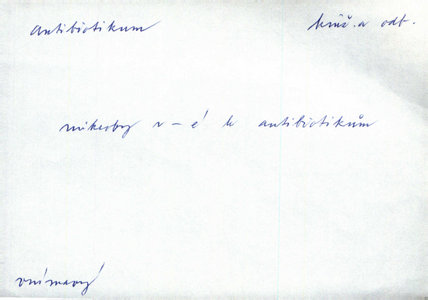 antibiotikum kniž. a odb.
mikroby v – é k antibiotikům
vnímavý